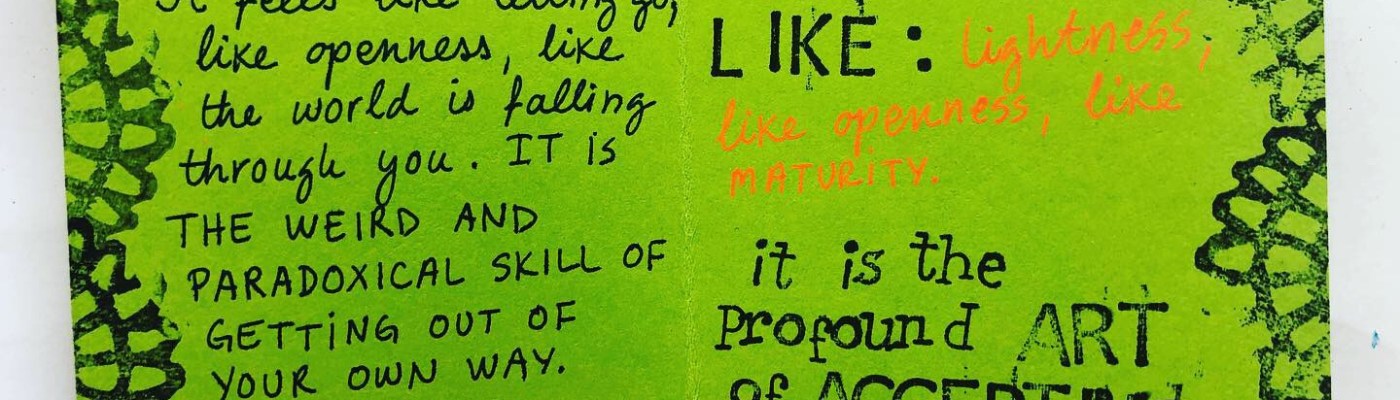 It feels like letting go,
like openness, like
the world is falling
through you. IT is
THE WEIRD AND
PARADOXICAL SKILL OF
GETTiNG OUT OF
YOUR OWN WAY.
LIKE: lightness,
like openness, like
MATURiTY.
it is the
Profound ART
of